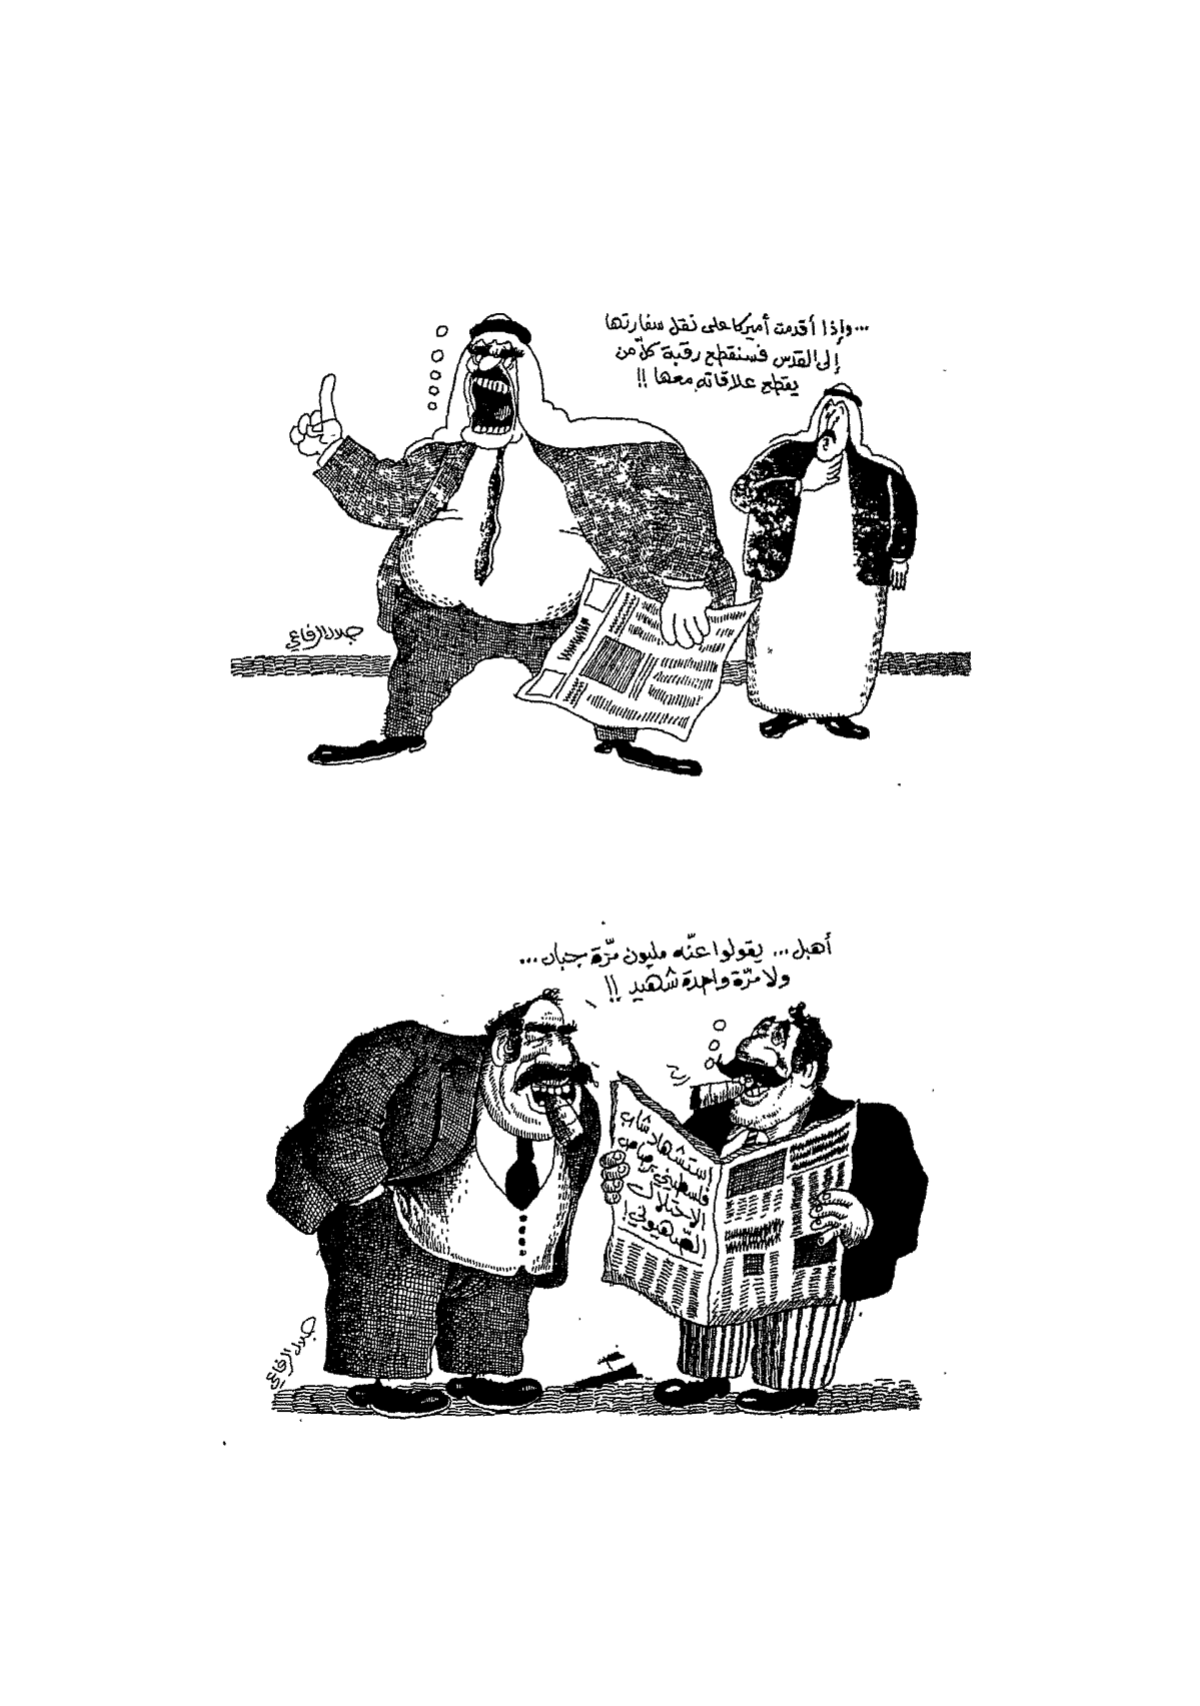 ...وإذا أقدمت أميركا على نقل سفارتها
إلى القدس فسنقطع رقبة كلّ من
يقطع علاقاته معها !!
جلال الرفاعي
أهبل... يقولوا عنّه مليون مرّة جبان...
ولا مرّة واحدة شهيد !!
استشهاد شاب
فلسطيني برصاص
الاحتلال
الصّهيوني!
جلال الرفاعي